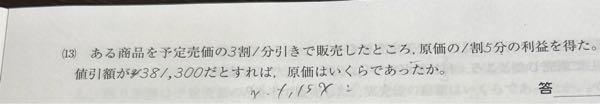 (13) ある商品を予定売価の3割1分引きで販売したところ，原価の1割5分の利益を得た。
値引額が¥381,300だとすれば，原価はいくらであったか。
答